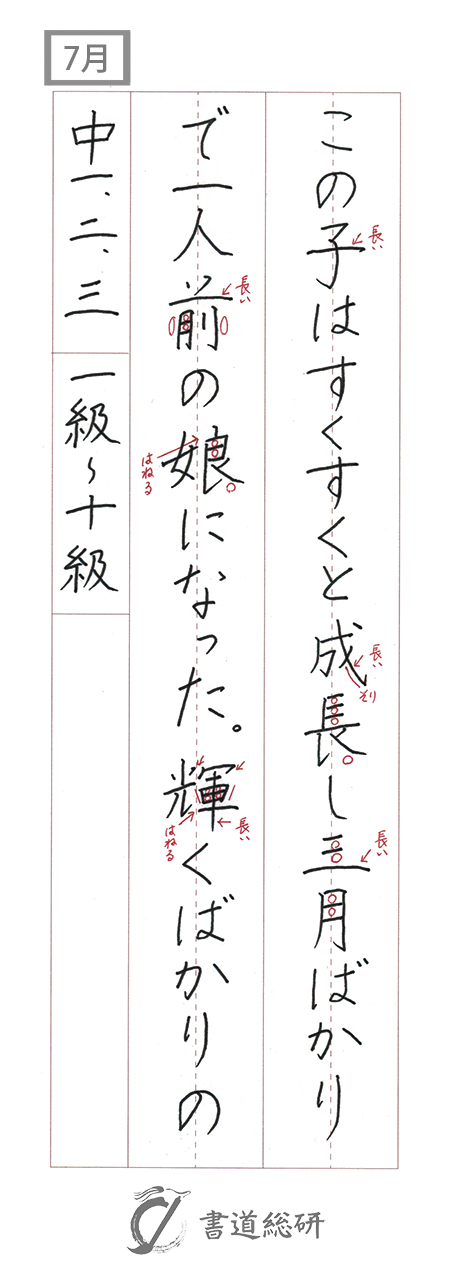 7月
この子はすくすくと成長し三月ばかり
で一人前の娘になった。輝くばかりの
中一、二、三
一級〜十級
長い
長い
はねる
長い
そり
長い
はねる
長い
書道総研